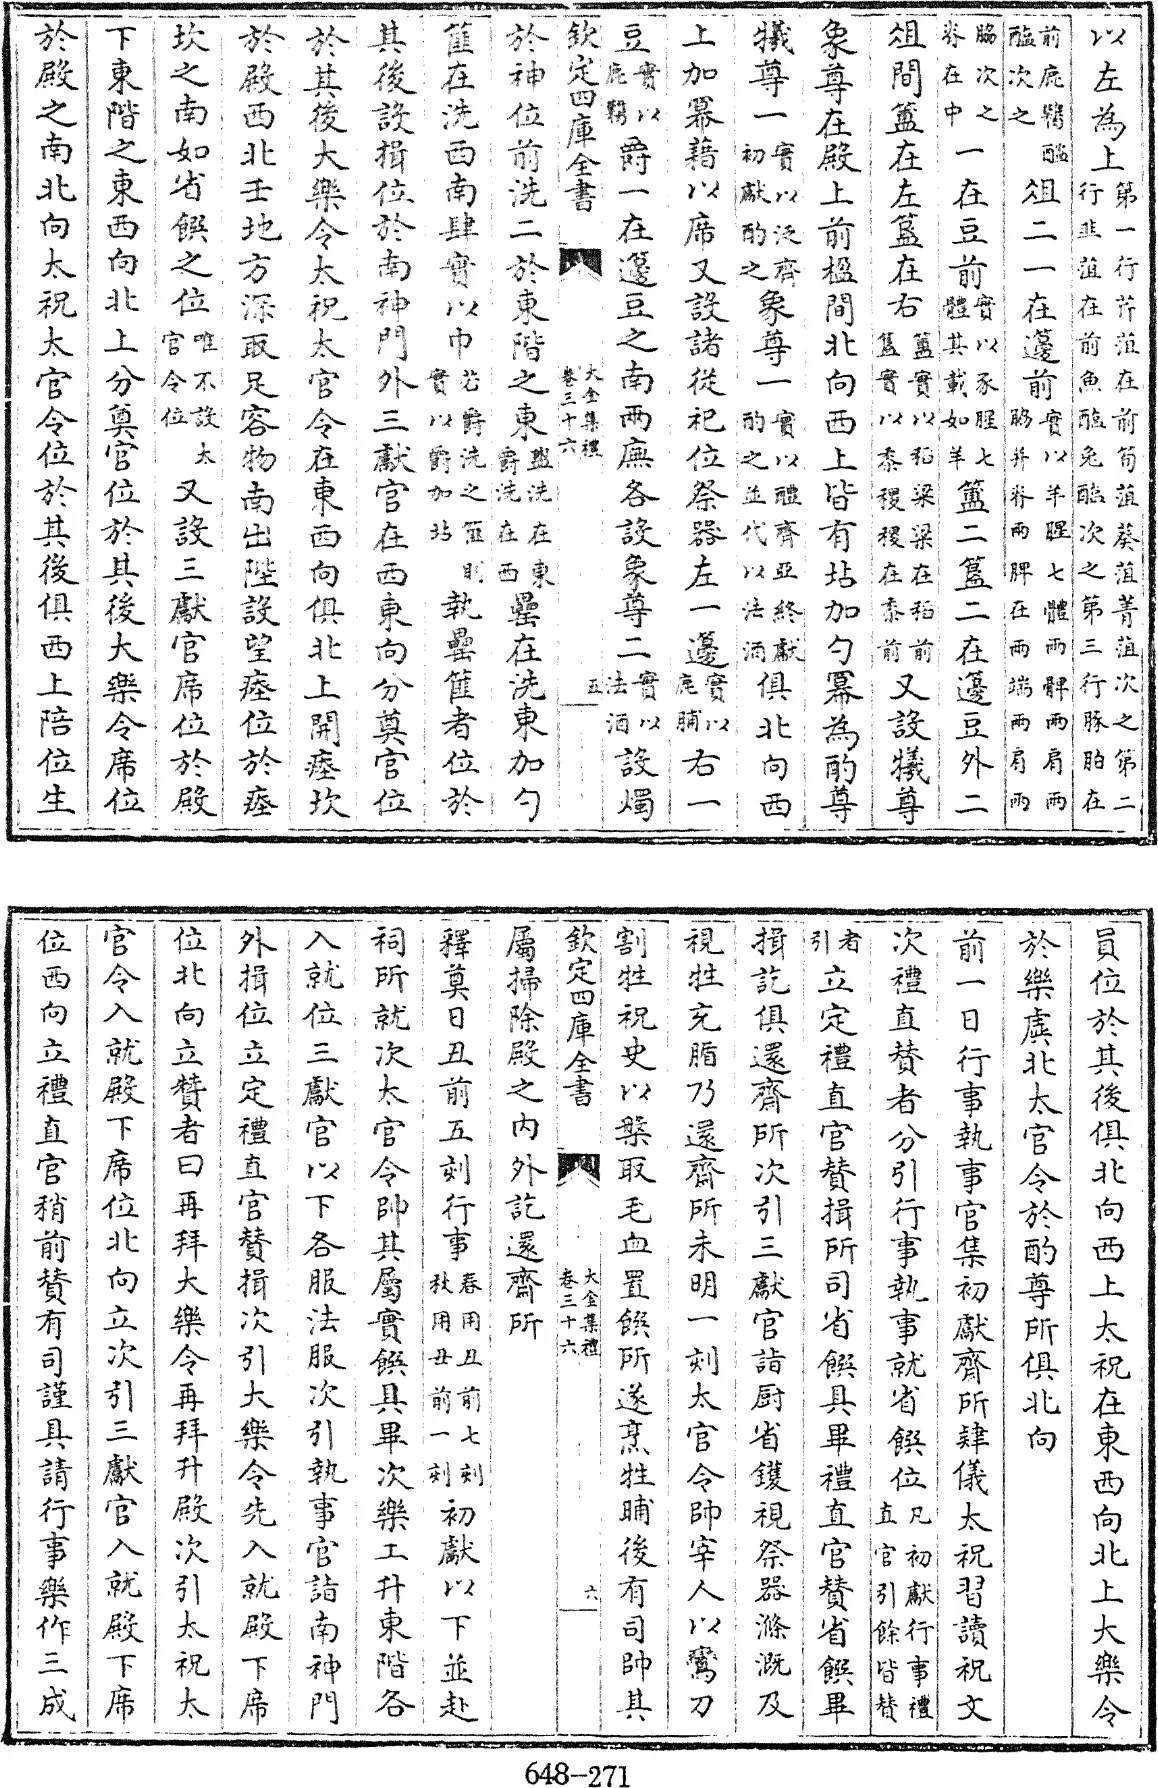 以左為上第一行芹菹在前筍菹葵菹菁菹次之第二行韭菹在前魚醢兔醢次之第三行豚胉在
前鹿臡醓醢次之俎二一在籩前實以羊腥七體兩髀兩肩兩脇并脊兩脾在兩端兩肩兩
脇次之脊在中一在豆前實以豕腥七體其載如羊簠二簋二在籩豆外二
俎間簠在左簋在右簠實以稻粱粱在稻前簋實以黍稷稷在黍前又設犧尊
象尊在殿上前楹間北向西上皆有坫加勺冪為酌尊
犧尊一實以泛齊初獻酌之象尊一實以醴齊亞終獻酌之並代以法酒俱北向西
上加冪藉以席又設諸從祀位祭器左一籩實以鹿脯右一
豆實以鹿臡爵一在籩豆之南兩廡各設象尊二實以法酒設燭
欽定四庫全書 大金集禮 卷三十六 五
於神位前洗二於東階之東盥洗在東爵洗在西罍在洗東加勺
篚在洗西南肆實以巾若爵洗之篚則實以爵加坫執罍篚者位於
其後設揖位於南神門外三獻官在西東向分奠官位
於其後大樂令太祝太官令在東西向俱北上開瘞坎
於殿西北壬地方深取足容物南出陛設望瘞位於瘞
坎之南如省饌之位唯不設太官令位又設三獻官席位於殿
下東階之東西向北上分奠官位於其後大樂令席位
於殿之南北向太祝太官令位於其後俱西上陪位生
員位於其後俱北向西上太祝在東西向北上大樂令
於樂虡北太官令於酌尊所俱北向
前一日行事執事官集初獻齊所肄儀太祝習讀祝文
次禮直贊者分引行事執事就省饌位凡初獻行事禮直官引餘皆贊
者引立定禮直官贊揖所司省饌具畢禮直官贊省饌畢
揖訖俱還齋所次引三獻官詣厨省鑊視祭器滌溉及
視牲充腯乃還齋所未明一刻太官令帥宰人以鸞刀
割牲祝史以槃取毛血置饌所遂烹牲晡後有司帥其
欽定四庫全書 大金集禮 卷三十六 六
屬掃除殿之內外訖還齋所
釋奠日丑前五刻行事春用丑前七刻秋用丑前一刻初獻以下並赴
祠所就次太官令帥其屬實饌具畢次樂工升東階各
入就位三獻官以下各服法服次引執事官詣南神門
外揖位立定禮直官贊揖次引大樂令先入就殿下席
位北向立贊者曰再拜大樂令再拜升殿次引太祝太
官令入就殿下席位北向立次引三獻官入就殿下席
位西向立禮直官稍前贊有司謹具請行事樂作三成
648-271